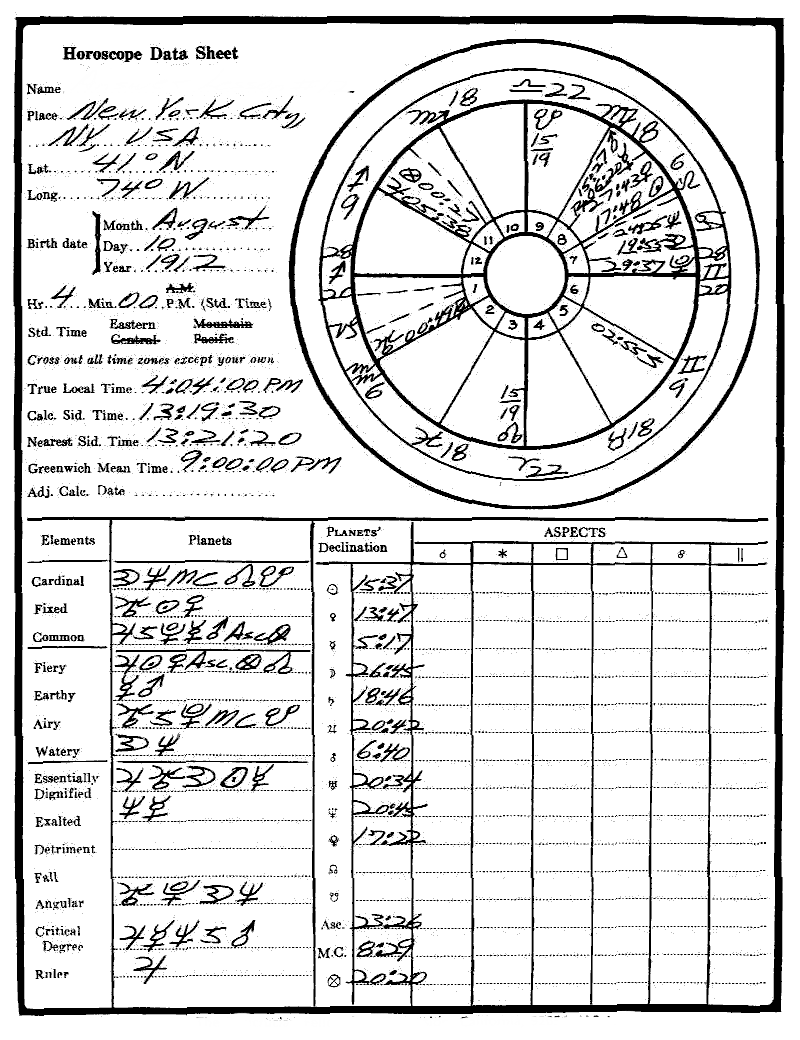 Horoscope Data Sheet
Name
Place New York City,
NY, USA
Lat. 41° N
Long. 74° W
Birth date
Month August
Day 10
Year 1912
A.M.
Hr. 4 Min. 00 P.M. (Std. Time)
Std. Time Eastern Mountain
Central Pacific
Cross out all time zones except your own
True Local Time 4:04:00 PM
Calc. Sid. Time 13:19:30
Nearest Sid. Time 13:21:20
Greenwich Mean Time 9:00:00 PM
Adj. Calc. Date
♎ 22
♏ 18
♐ 9
28 ♐ 20
♓ 18
♈ 22
♉ 18
♊ 9
28 ♊ 20
15 19
15 19
17:48 ☉
29:37
02:55
1 2 3 4 5 6 7 8 9 10 11 12
Elements Planets
Cardinal ☽ ♆ MC ☊ ☋
Fixed ♅ ☉ ♀
Common
Fiery
Earthy ☿ ♂
Airy
Watery ☽ ♆
Essentially Dignified ♃ ♅ ☽ ☉ ☿
Exalted ♆ ☿
Detriment
Fall
Angular
Critical Degree
Ruler ♃
PLANETS' Declination
☉ 15:37
♀ 13:47
☿ 5:17
☽ 26:45
♄ 18:46
♃ 20:42
♂ 6:40
♅ 20:34
♆ 20:45
17:22
☊
☋
Asc. 23:26
M.C. 8:29
⊗ 20:20
ASPECTS
☌ ✶ □ △ ☍ ||